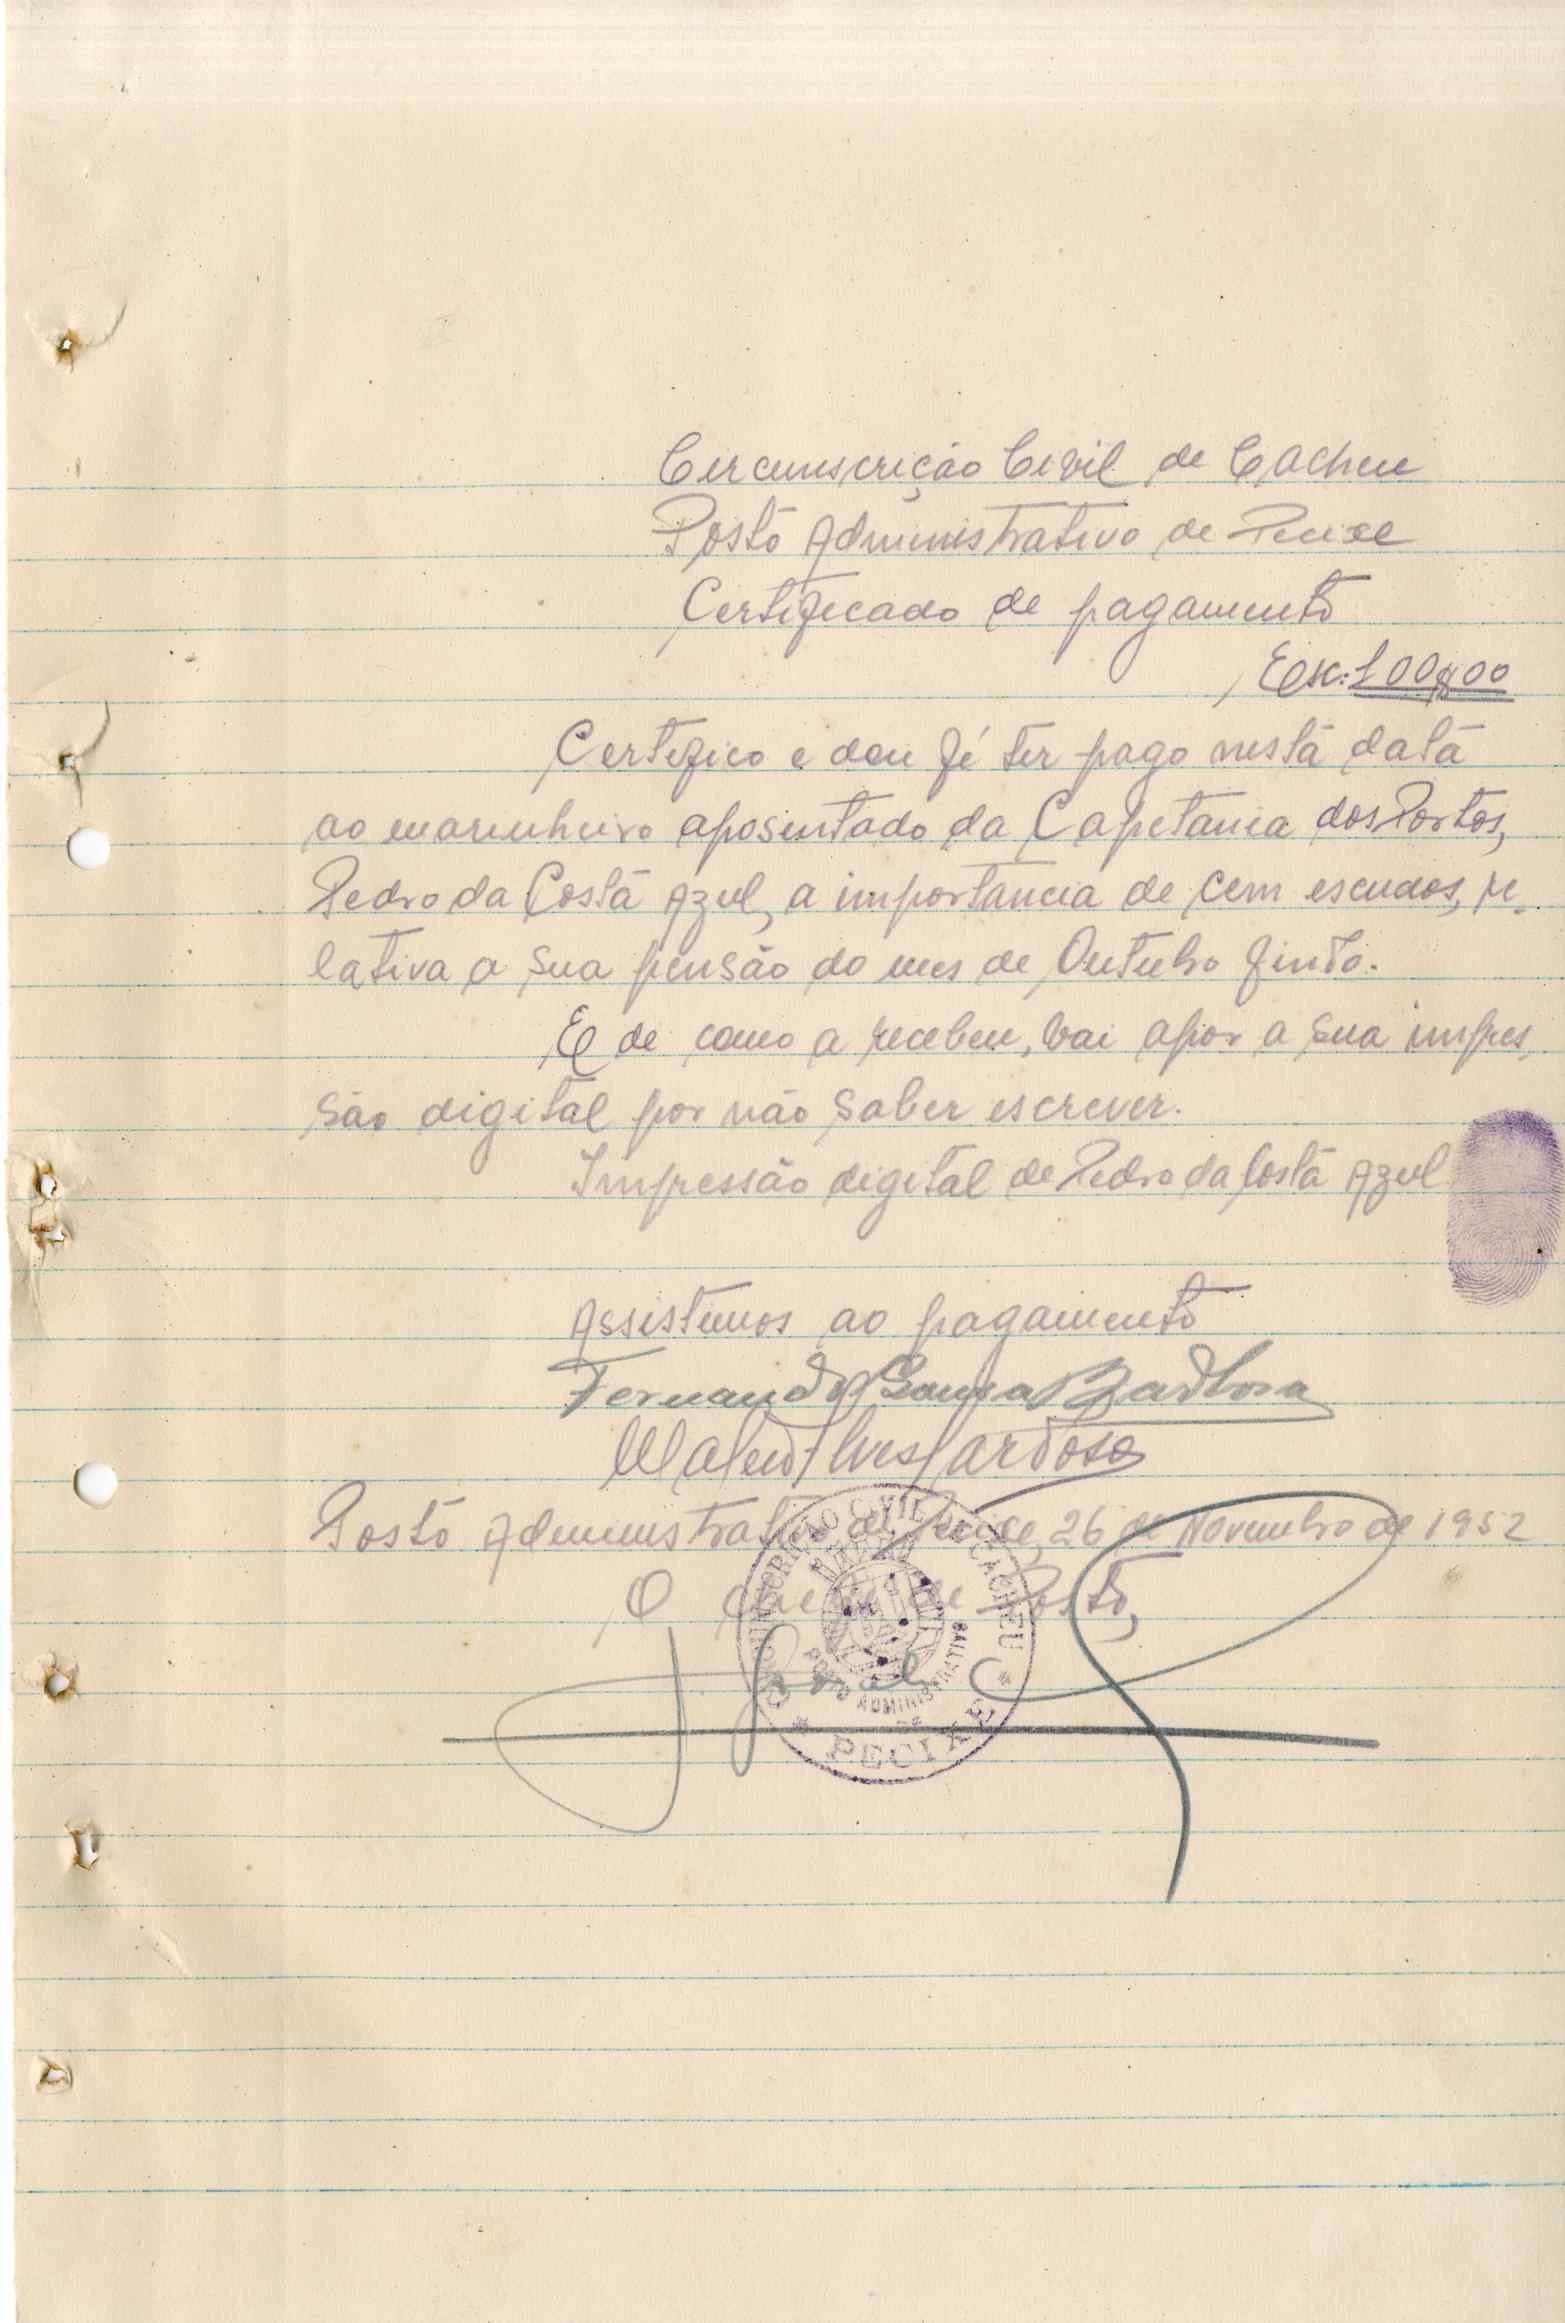 Circunscrição Civil de Cacheu
Posto Administrativo de Pecixe
Certificado de pagamento
Esc: 100$00
Certifico e dou fé ter pago nesta data
ao marinheiro aposentado da Capitania dos Portos,
Pedro da Costa Azul, a importancia de cem escudos, re-
lativa a sua pensão do mes de Outubro findo.
E de como a recebeu, vai apor a sua impres-
são digital por não saber escrever.
Impressão digital de Pedro da Costa Azul
Assistimos ao pagamento
Fernando Barbosa
Alves Cardoso
Posto Administrativo de Pecixe, 26 de Novembro de 1952
O chefe de Posto,
CIRCUNSCRIÇÃO CIVIL DE CACHEU
POSTO ADMINISTRATIVO
DE
* PECIXE *